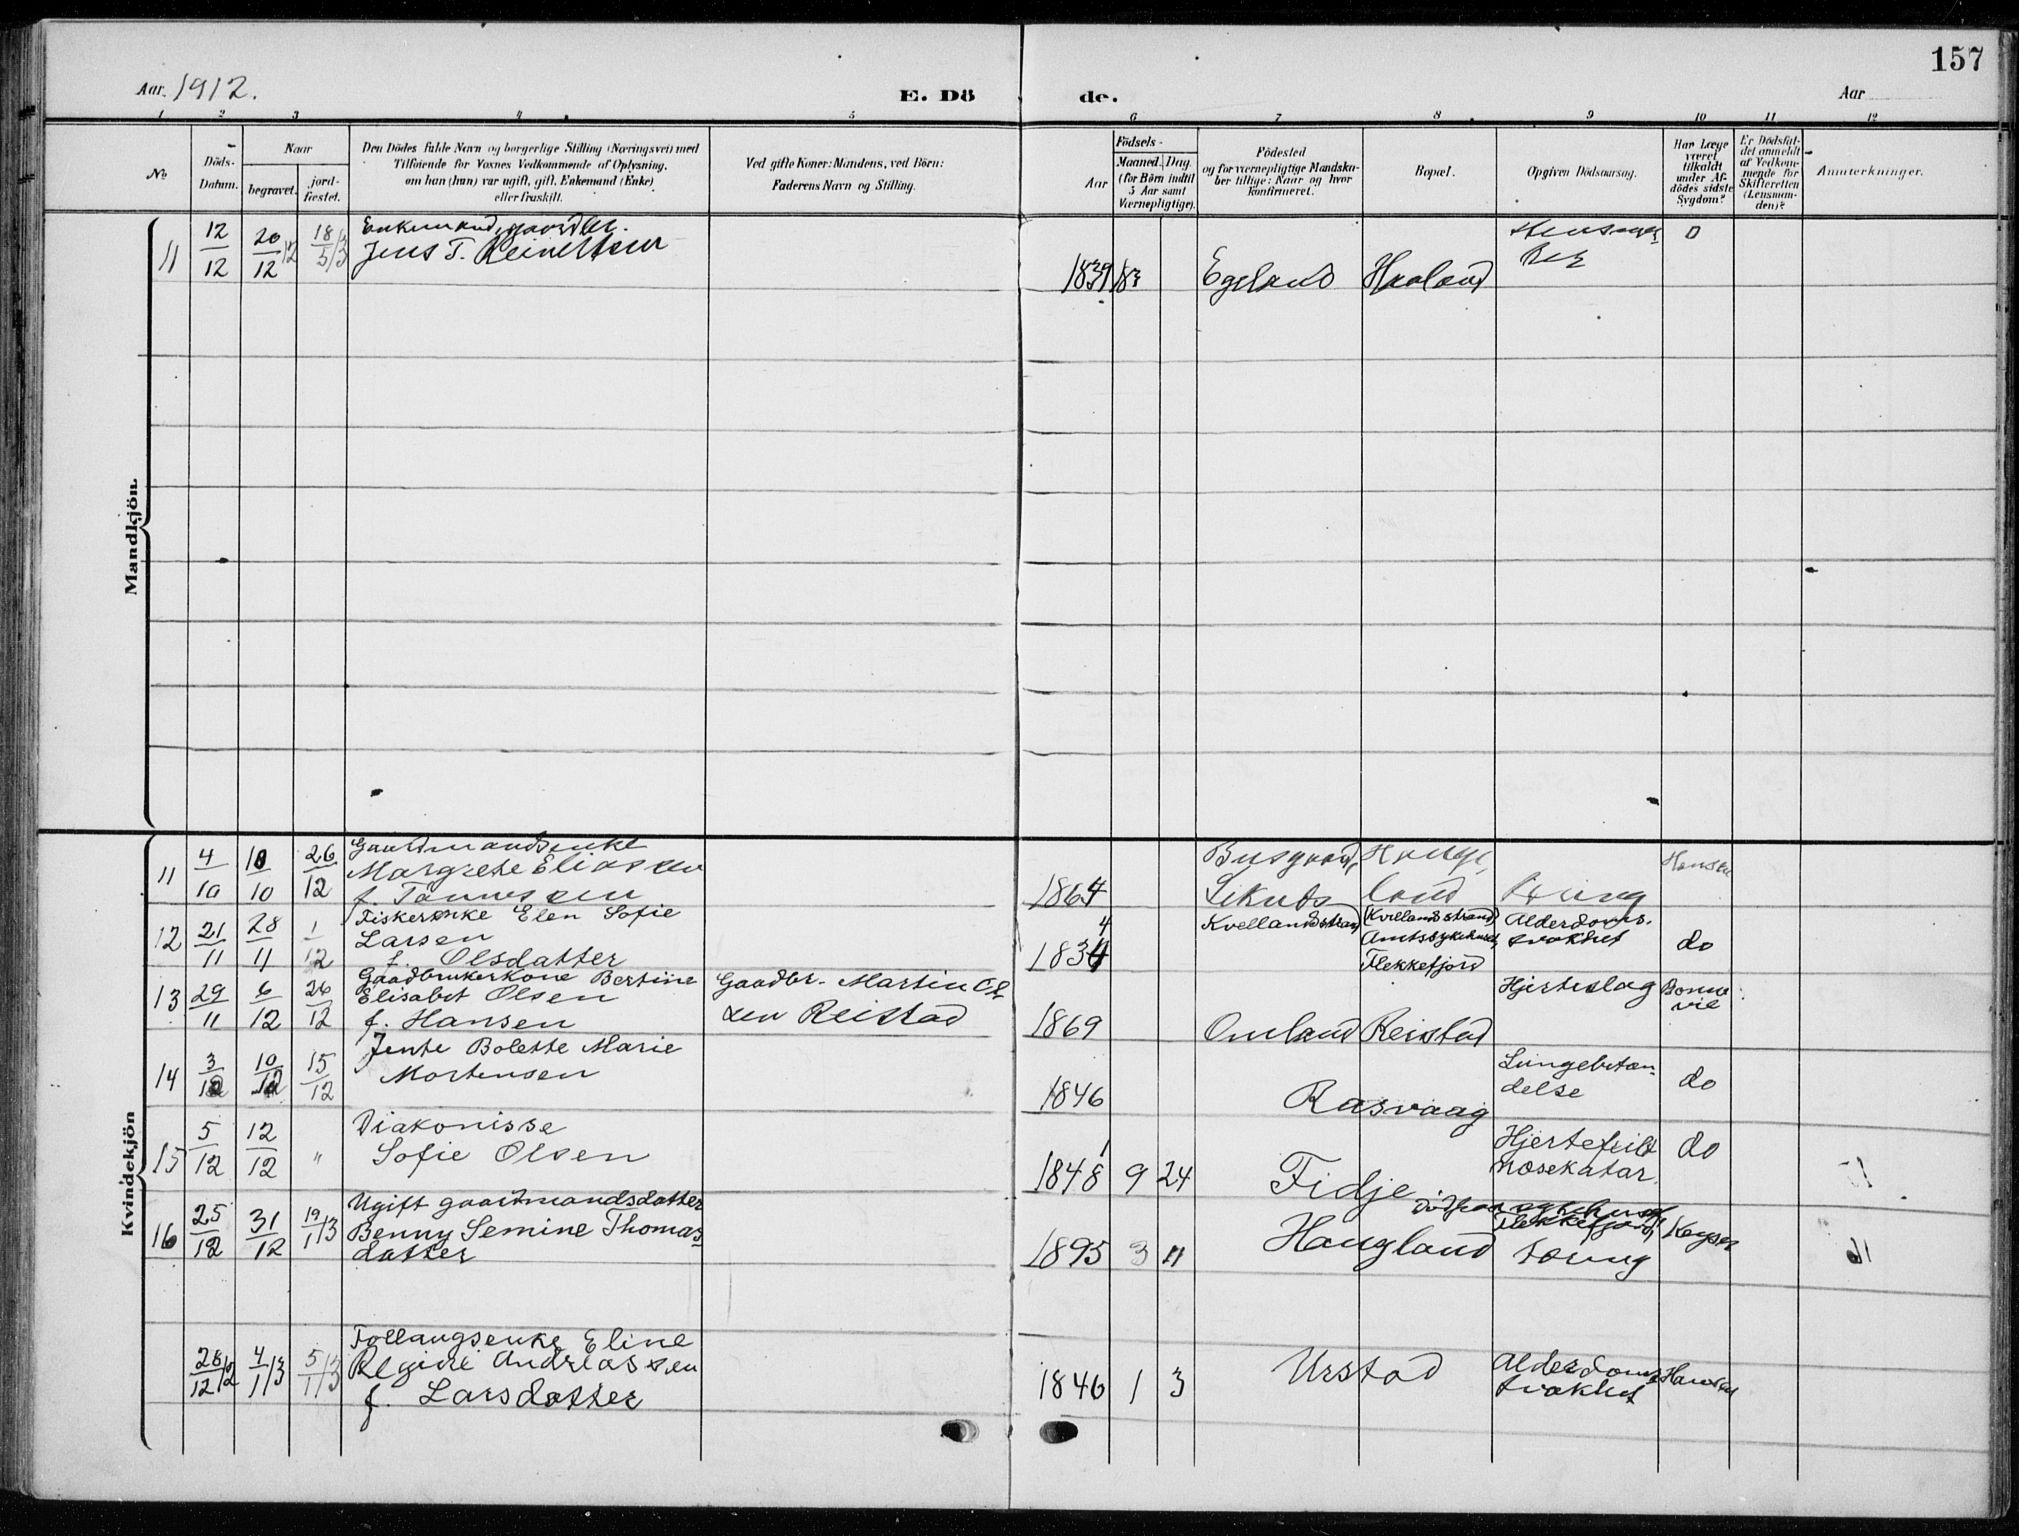 157
Aar 1912.
E. Dö de.
Aar
1 2 3 4 5 6 7 8 9 10 11 12
No
Döds-
Datum.
Naar
begravet.
jord-
fæstet.
Den Dödes fulde Navn og borgerlige Stilling (Næringsvei) med
Tilföiende for Voxnes Vedkommende af Oplysning,
om han (hun) var ugift, gift, Enkemand (Enke)
eller fraskilt.
Ved gifte Koner: Mandens, ved Börn:
Faderens Navn og Stilling.
Födsels-
Aar
Maaned. Dag.
(for Børn indtil
5 Aar samt
Værnepligtige).
Födested
og for værnepligtige Mandska-
ber tillige: Naar og hvor
konfirmeret.
Bopæl.
Opgiven Dödsaarsag.
Har Læge
været
tilkaldt
under Af-
dödes sidste
Sygdom?
Er Dödsfal-
det anmeldt
af Vedkom-
mende for
Skifteretten
(Lensman-
den)?
Anmærkninger.
Mandkjön.
11 12/12 20/12 12 18/5 13 Enkemand, gaardbr.
Jens T. Reinertsen
1839 Egeland Haaland 0
Kvindekjön
11 4/10 10/10 26/12 Gaardmandsenke
Margrete Eliassen
f. Tønnessen
1864
land
12 21/11 28/11 1/12 Fiskerenke Elen Sofie
Larsen
f. Olsdatter
1834 Kvellandstrand Kvellandstrand
Amtssykehuset
Flekkefjord
Alderdoms-
svakhet do
13 29/11 6/12 26/12 Gaardbrukerkone Bertine
Elisabet Olsen
f. Hansen
Gaardbr. Martin Ol
sen Reistad
1869 Omland Reistad Hjerteslag Bonne
vie
14 3/12 10/12 15/12 Jente Bolette Marie
Mortensen
1846 Rasvaag Lungebetæn-
delse do
15 5/12 12/12 " Diakonisse
Sofie Olsen
1848 9 24 Fidje Hjertefeil
do
16 25/12 31/12 19/1 13 Ugift gaardmandsdatter
Benny Semine Thomas-
datter
1895 3 11 Haugland
Flekkefjord
Keyser
28/12 12 4/1 13 5/1 13 Follaugsenke Eline
Regine Andreassen
f. Larsdatter
1846 1 3 Urstad Alderdoms
svakhet Hansen